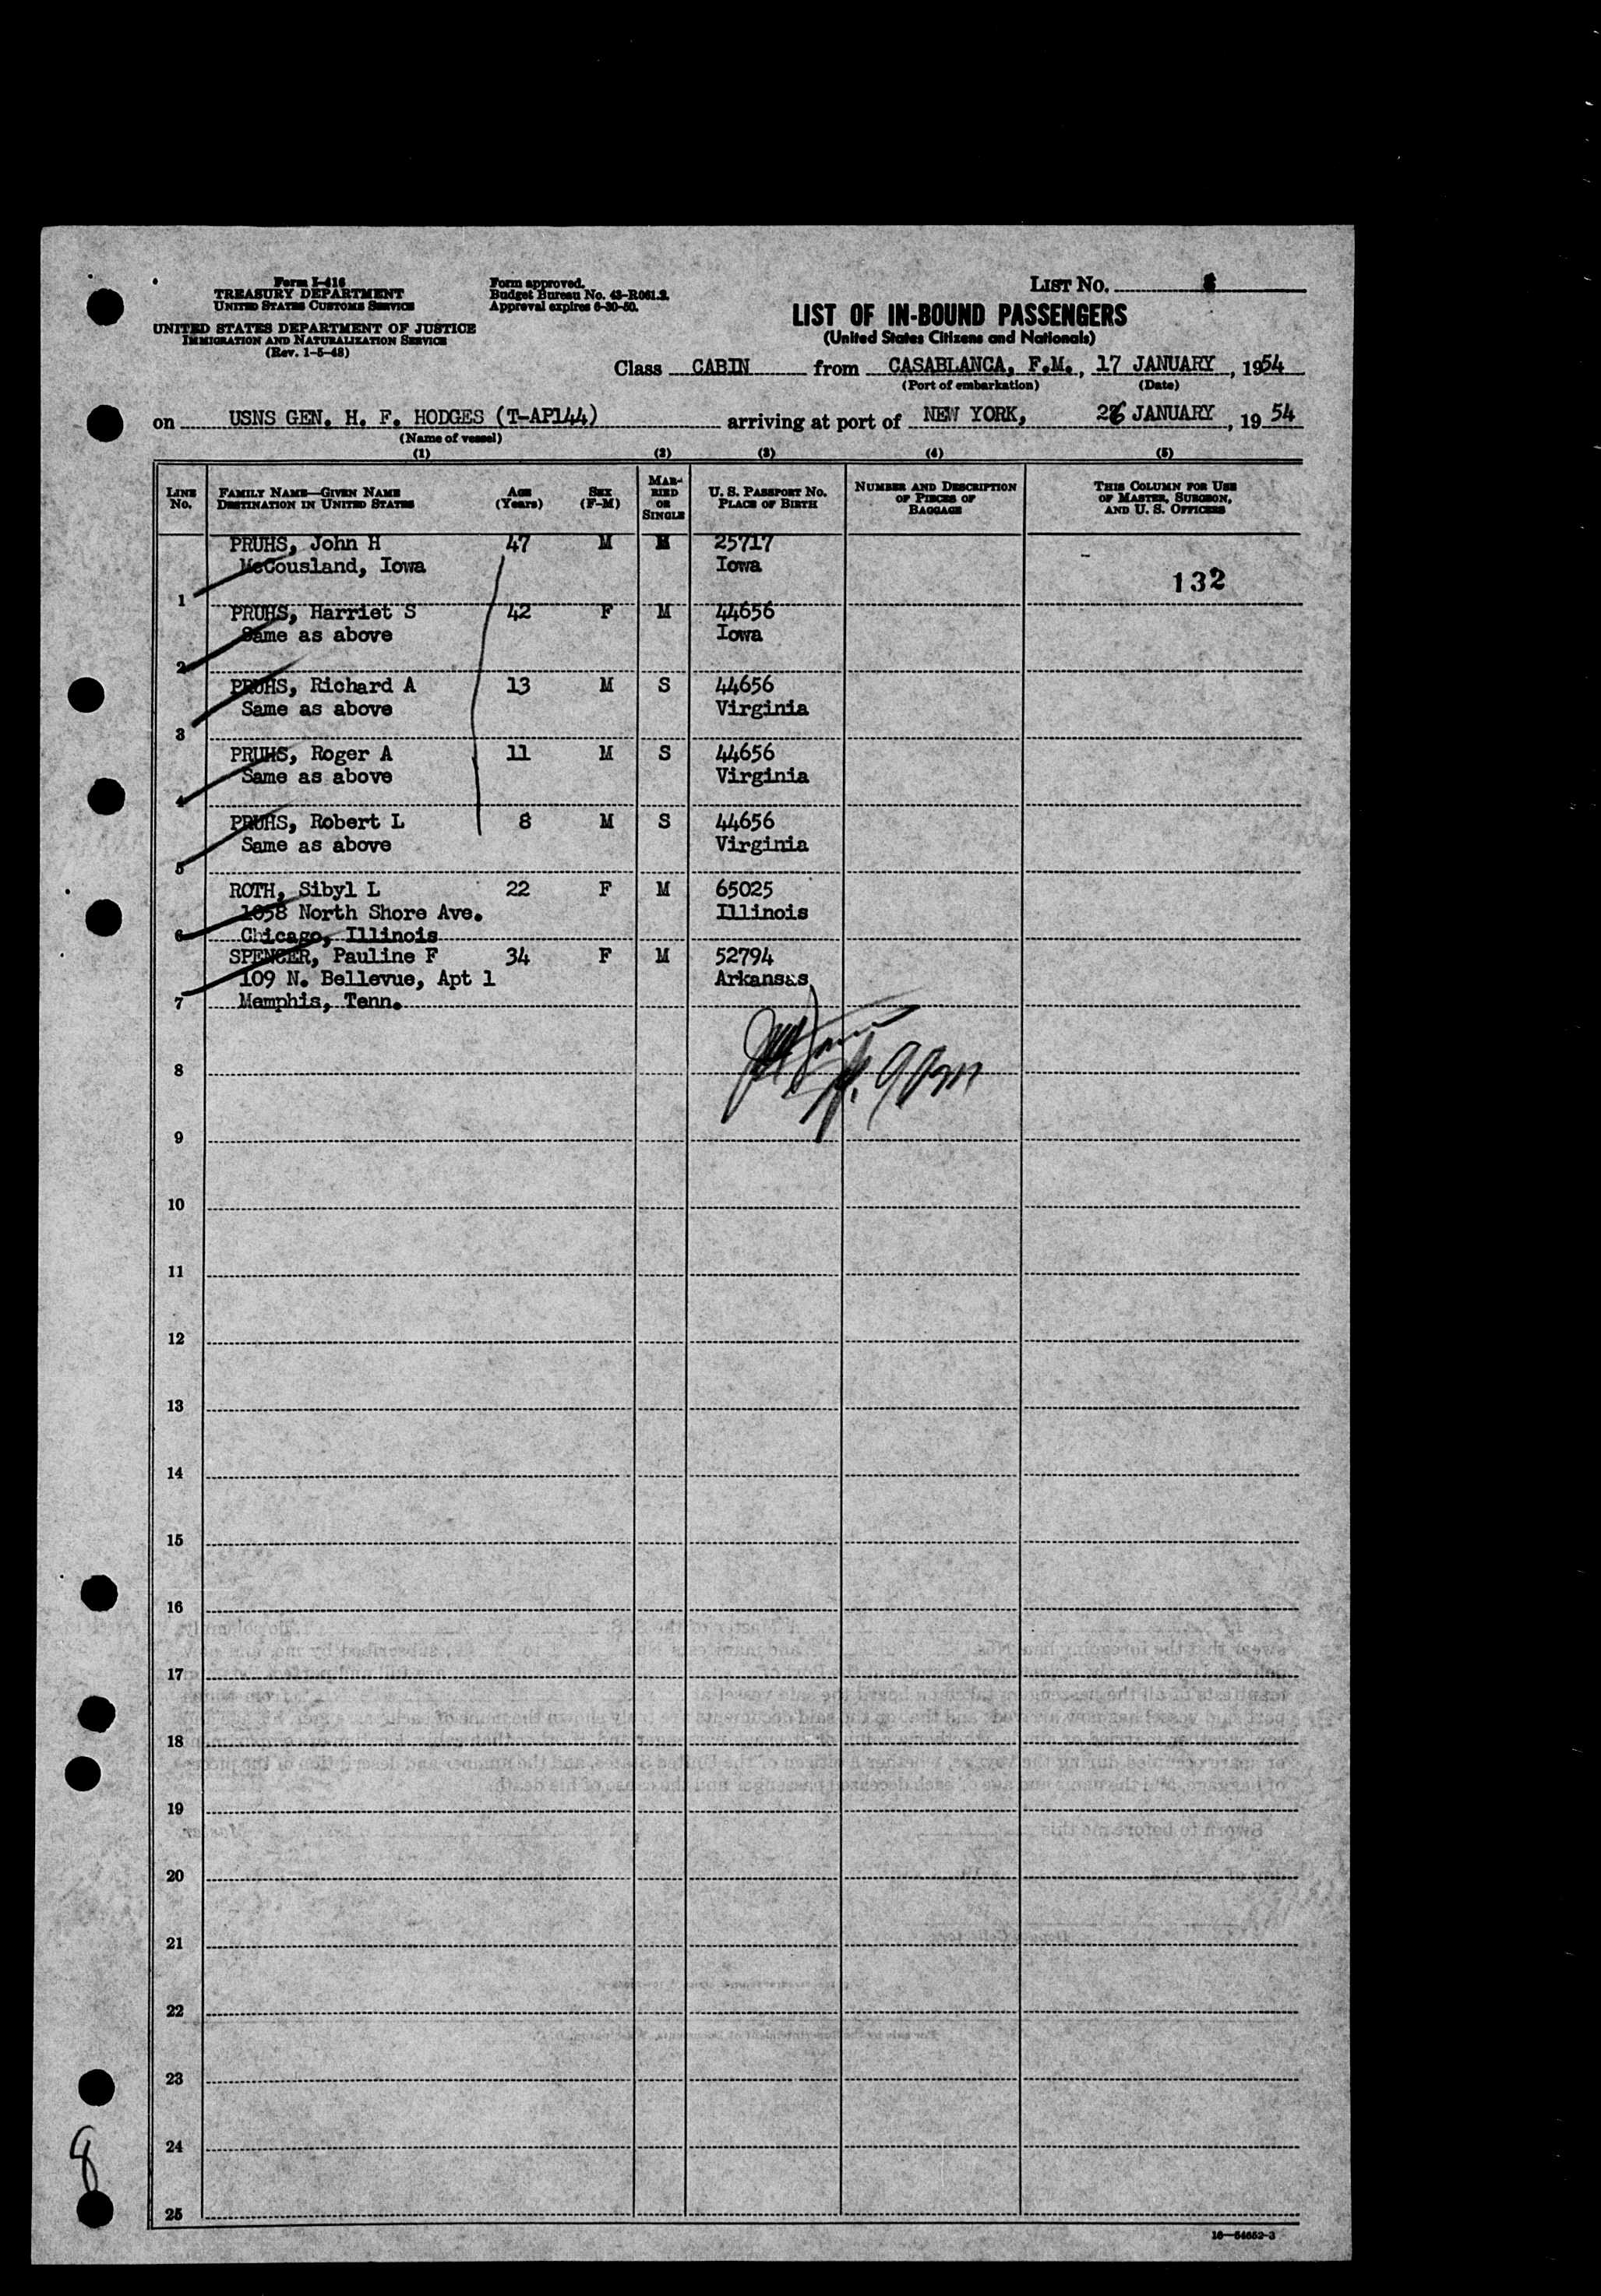 Form I-416
TREASURY DEPARTMENT
UNITED STATES CUSTOMS SERVICE
UNITED STATES DEPARTMENT OF JUSTICE
IMMIGRATION AND NATURALIZATION SERVICE
(Rev. 1-5-48)
Form approved.
Budget Bureau No. 43-R061.2.
Approval expires 6-30-50.
LIST No.
LIST OF IN-BOUND PASSENGERS
(United States Citizens and Nationals)
Class CABIN from CASABLANCA, F.M., 17 JANUARY, 1954
(Port of embarkation) (Date)
on USNS GEN. H. F. HODGES (T-AP144) arriving at port of NEW YORK, 26 JANUARY, 19 54
(Name of vessel)
(1) (2) (3) (4) (5)
LINE No. FAMILY NAME—GIVEN NAME DESTINATION IN UNITED STATES AGE (Years) SEX (F-M) MARRIED OR SINGLE U. S. PASSPORT NO. PLACE OF BIRTH NUMBER AND DESCRIPTION OF PIECES OF BAGGAGE THIS COLUMN FOR USE OF MASTER, SURGEON, AND U. S. OFFICERS
PRUHS, John H 47 M M 25717
McCousland, Iowa Iowa
1 132
PRUHS, Harriet S 42 F M 44656
Same as above Iowa
2
PRUHS, Richard A 13 M S 44656
Same as above Virginia
3
PRUHS, Roger A 11 M S 44656
Same as above Virginia
4
PRUHS, Robert L 8 M S 44656
Same as above Virginia
5
ROTH, Sibyl L 22 F M 65025
1058 North Shore Ave. Illinois
6 Chicago, Illinois
SPENCER, Pauline F 34 F M 52794
109 N. Bellevue, Apt 1 Arkansas
7 Memphis, Tenn.
8
9
10
11
12
13
14
15
16
17
18
19
20
21
22
23
24
25
8
16—54652-3